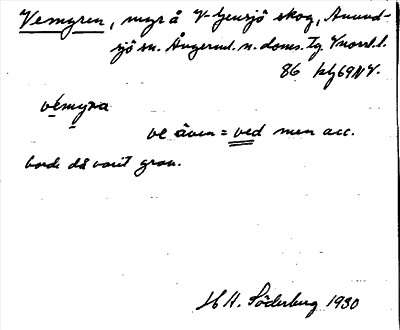 Vemyren, myr å V-Gensjö skog, Anund-
sjö sn. Ångerml. n. doms. tg. Vnorrl. l.
86 kbl 69 NV.
vémyra
ve även = ved men acc.
borde då varit grav.
H H. Söderberg 1930